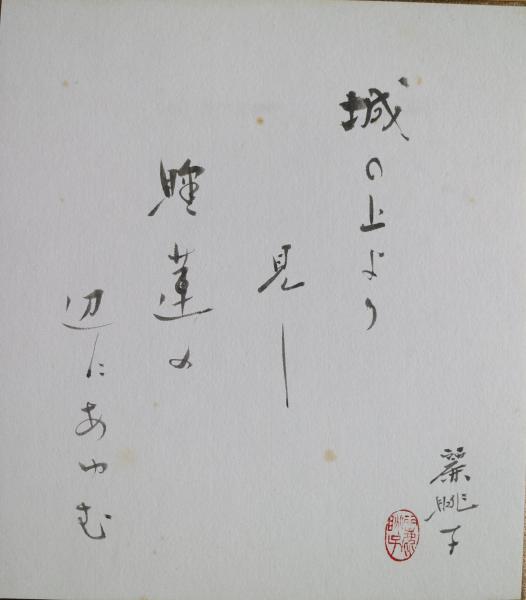 城の上より
見し
睡蓮の
辺にあゆむ
麗眺子